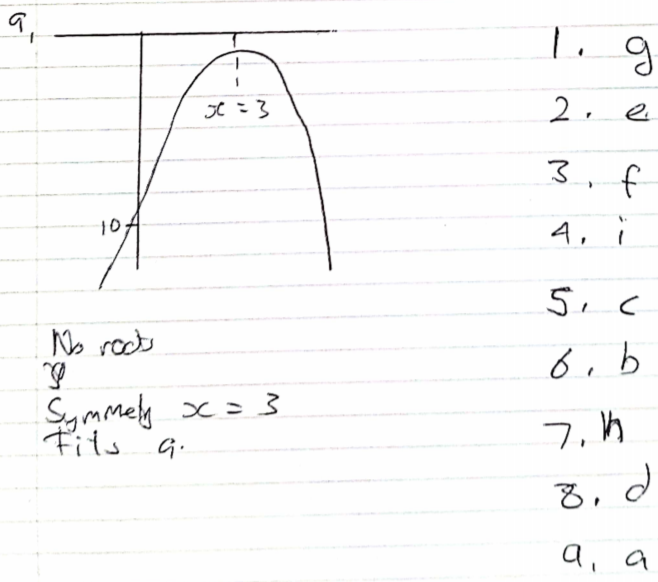 9,
x = 3
10
No roots
Symmety x = 3
Fits a.
1. g
2. e
3, f
4. i
5, c
6, b
7, h
8, d
9, a